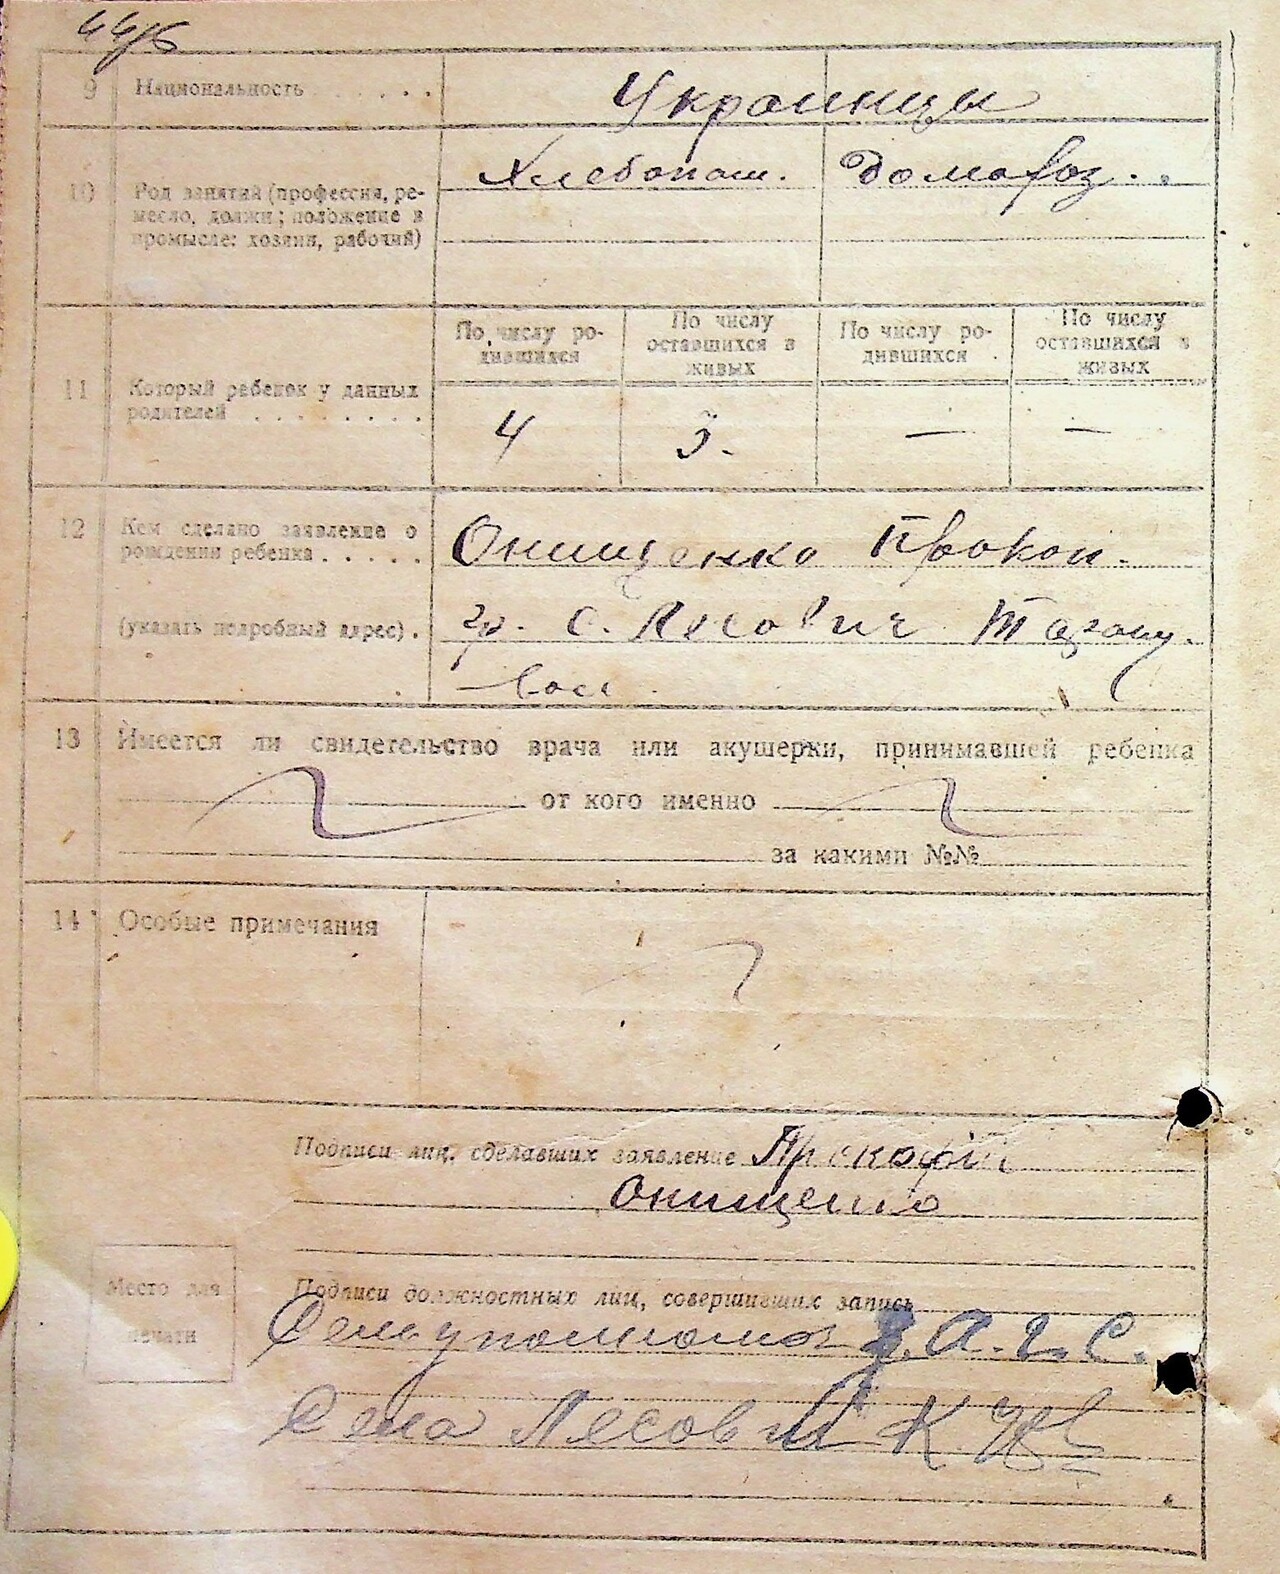 44/б
9 Национальность . . . . . . Украинцы
10 Род занятий (профессия, ре- Хлебопаш. Домохоз. .
месло, должн; положение в
промысле: хозяин, рабочий)
По числу ро- По числу По числу ро- По числу
дившихся оставшихся в дившихся . оставшихся в
живых живых
11 Который ребенок у данных
родителей . . . . . . . . 4 3. — —
12 Кем сделано заявление о Онищенко Прокоп.
рождении ребенка . . . . .
(указать подробный адрес) . гр. С. Лесович
13 Имеется ли свидетельство врача или акушерки, принимавшей ребенка
от кого именно
за какими №№
14 Особые примечания
Подписи лиц, сделавших заявление Прокофій
Онищенко
Место для Подписи должностных лиц, совершивших запись
печати З. А. Г. С.
Села Лесович К.